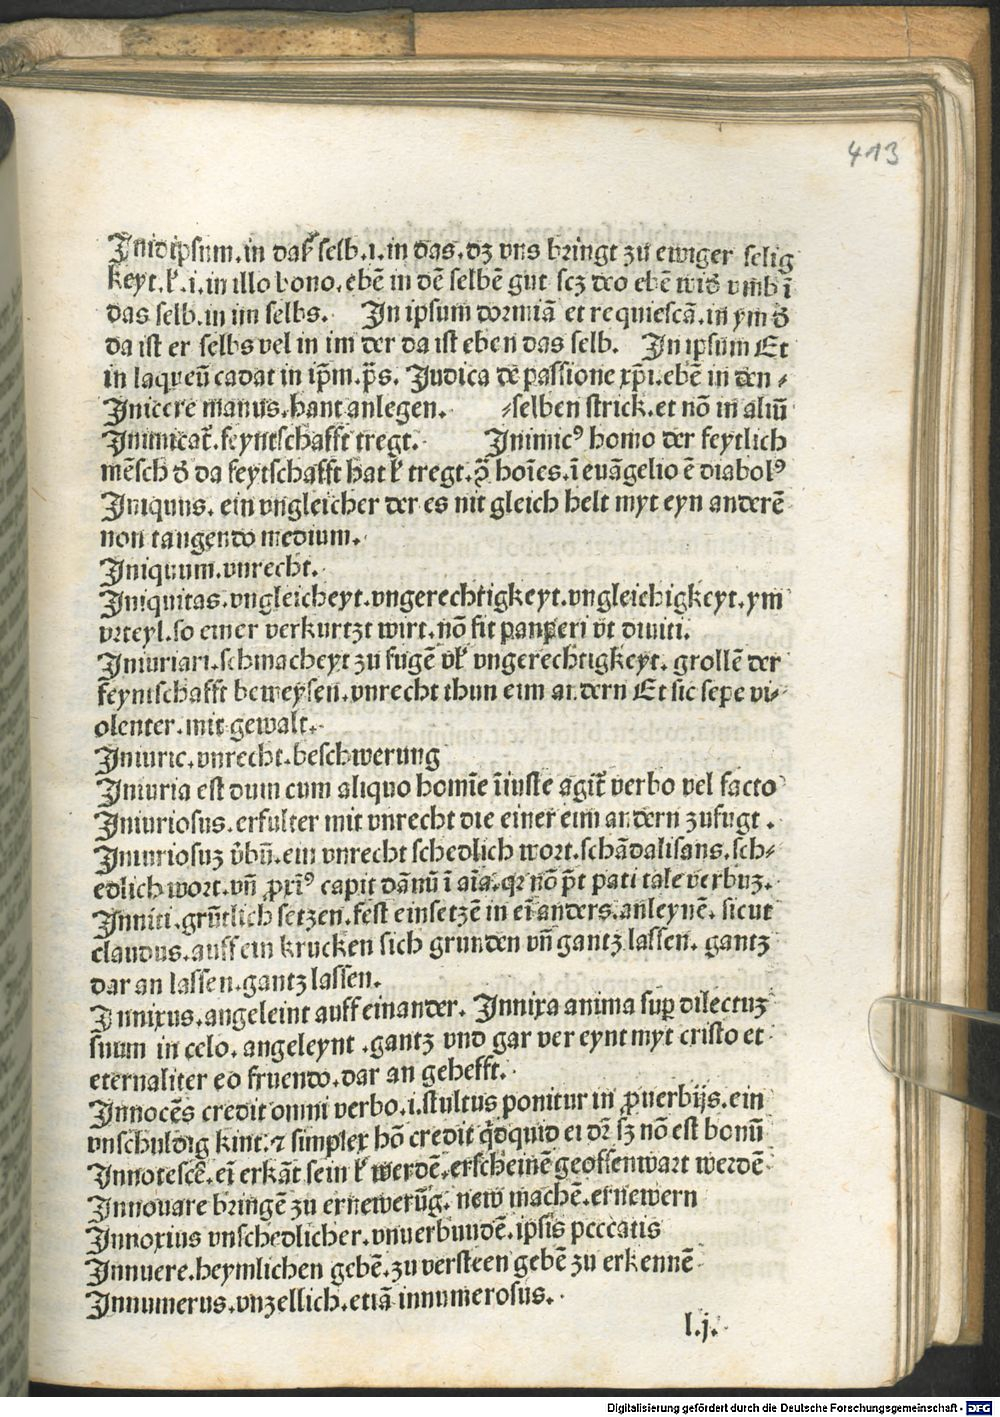 413
Inidipsum.in daſ ſelb.i.in das.dz vns bringt zů ewiger ſelig
keyt.ł.i.in illo bono.ebē in dē ſelbē gut ſcz deo ebē vmb ī
das ſelb.in im ſelbs. In ipſum dormiā et requieſcā.in ym
da iſt er ſelbs vel in im der da iſt eben das ſelb. In ipſum Et
in laqueū cadat in ip̄m.p̄s. Judica de paſſione xp̄i.ebē in den⸗
Iniicere manus.hant anlegen. ⸗ſelben ſtrick.et nō in aliū
feyntſchafft tregt. Inimicꝰ homo der feytlich
mēſch da feytſchafft hat ł tregt. hoīes.ī euāgelio ē diabolꝰ
Iniquus. ein vngleicher der es nit gleich helt myt eyn anderē
non tangendo medium.
Iniquum.vnrecht.
Iniquitas.vngleicheyt.vngerechtigkeyt.vngleichigkeyt.ym
vrteyl.ſo einer verkurtzt wirt.nō fit pauperi vt diuiti.
Iniuriari.ſchmacheyt zu fugē vngerechtigkeyt. grollē der
feyntſchafft beweyſen.vnrecht thun eim andern Et ſic ſepe vi⸗
olenter.mit gewalt.
Iniurie.vnrecht.beſchwerung
Iniuria eſt dum cum aliquo homīe īiuſte agit᷑ verbo vel facto
Iniurioſus.erfulter mit vnrecht die einer eim andern zufugt.
Iniurioſuz v̄bū.ein vnrecht ſchedlich wort.ſchādaliſans.ſch⸗
edlich wort.vn̄ ꝓxīꝰ capit dānū ī aīa.qꝛ nō p̄t pati tale verbuz.
Inniti.grūtlich ſetzen.feſt einſetzē in eī anders.anleynē. ſicut
claudus.auff ein krucken ſich grunden vn̄ gantz laſſen. gantz
dar an laſſen.gantz laſſen.
Innixus.angeleint auff einander. Innixa anima ſuꝑ dilectuz
ſuum in celo.angeleynt.gantz vnd gar vereynt myt criſto et
eternaliter eo fruendo.dar an gehefft.
Innocēs credit omni verbo.i.ſtultus ponitur in ꝓuerbijs.ein
vnſchuldig kint.⁊ ſimplex hō credit qdquid ei dr̄ ſꝫ nō eſt bonū
Innoteſcē.eī erkāt ſein ł werdē.erſcheinē geoffenwart werdē
Innouare bringē zu ernewerūg.new machē.ernewern
Innoxius vnſchedlicher.vnuerbundē.ipſis peccatis
Innuere.heymlichen gebē.zu verſteen gebē zu erkennē
Innumerus.vnzellich.etiā innumeroſus.
l.j.
Digitalisierung gefördert durch die Deutsche Forschungsgemeinschaft - DFG